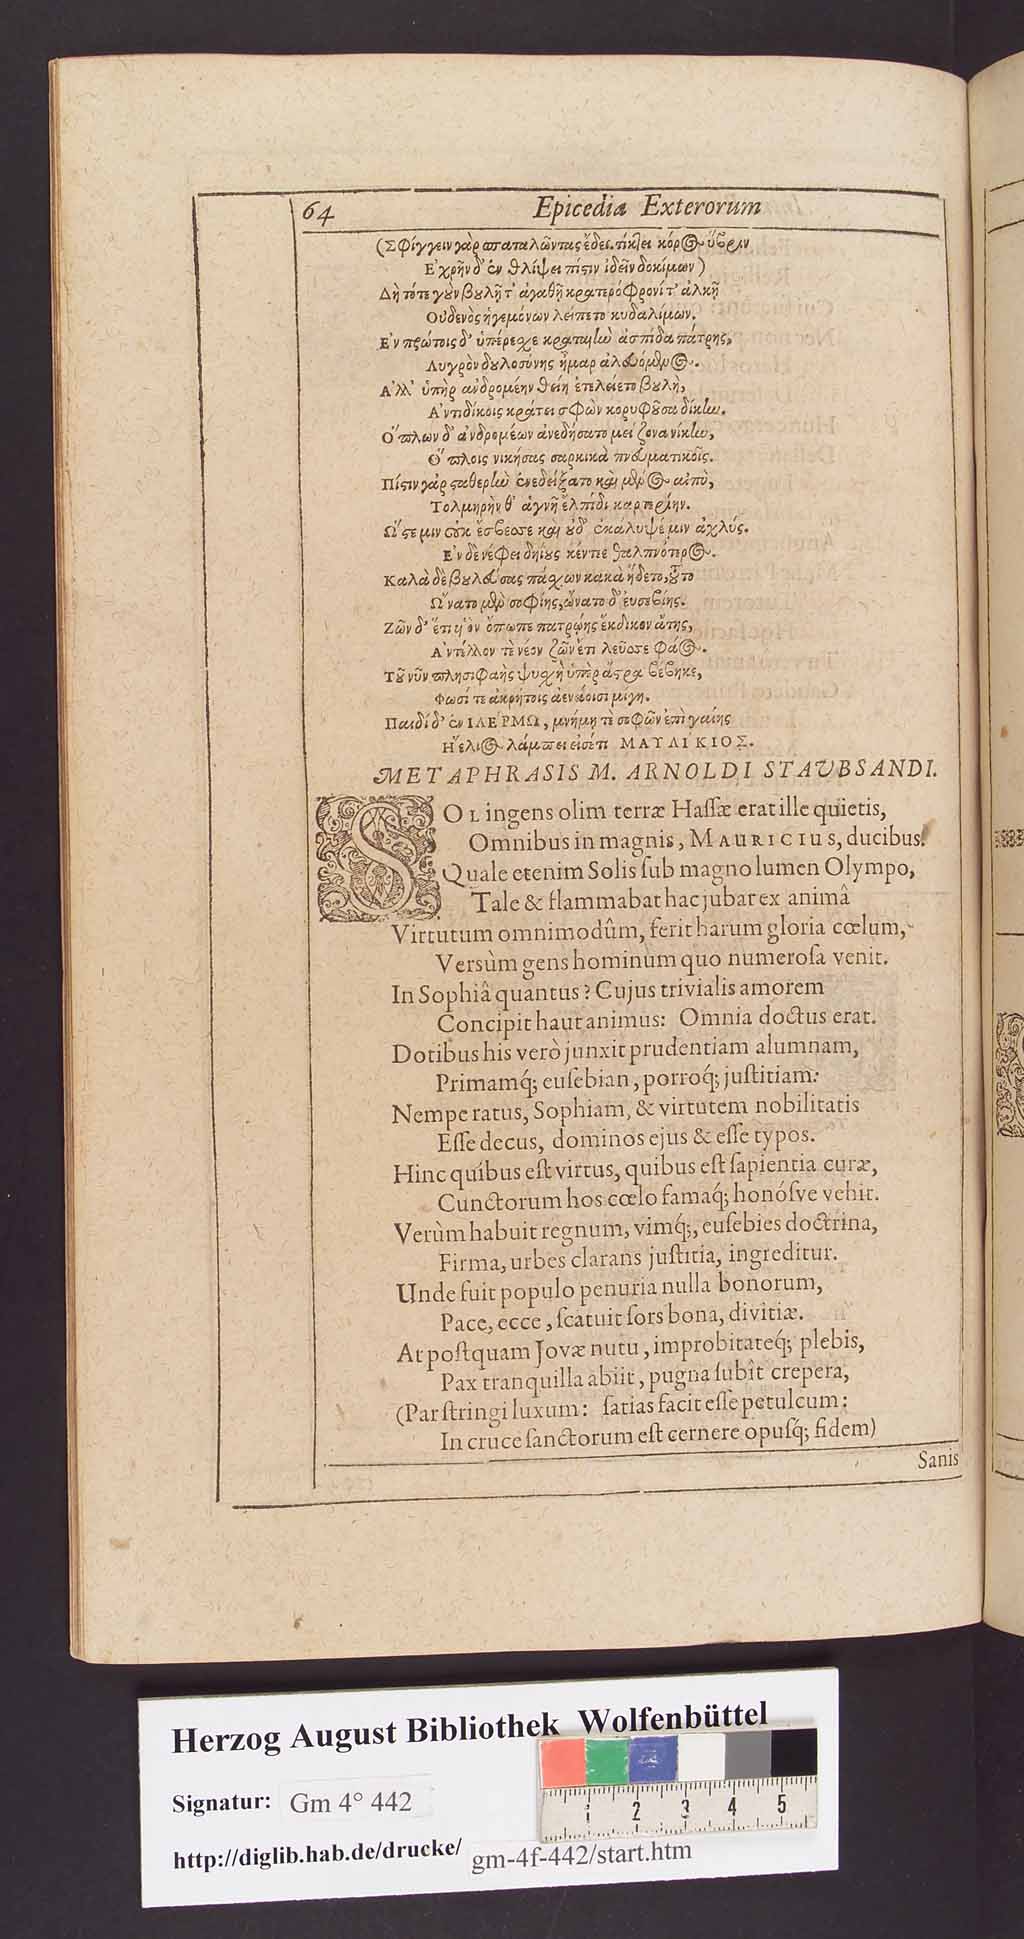 64 Epicedia Exterorum
(Σφίγγειν γὰρ σπαταλῶντας ἔδει. τίκτει κόρος ὕβριν
Ἐχρῆν δ' ἐν θλίψει πίστιν ἰδεῖν δοκίμων)
Δὴ τότε γοῦν βουλῇ τ' ἀγαθῇ κρατερόφρονί τ' ἀλκῇ
Οὐδενὸς ἡγεμόνων λείπετο κυδαλίμων.
Ἐν πρώτοις δ' ὑπέρεχε κραταιὴν ἀσπίδα πάτρης,
Λυγρὸν δουλοσύνης ἦμαρ ἀλευόμενος.
Ἀλλ' ὑπὲρ ἀνδρομέην θείη ἐτελείετο βουλὴ,
Ἀντιδίκοις κράτει σφῶν κορυφοῦσα δίκην.
Ὅπλων δ' ἀνδρομέων ἀνεδήσατο μείζονα νίκην,
Ὅπλοις νικήσας σαρκικὰ πνευματικοῖς.
Πίστιν γὰρ σταθερὴν ἐνεδείξατο καὶ μένος αἰπὺ,
Τολμηρὴν θ' ἁγνῇ ἐλπίδι καρτερίην.
Ὥστε μιν οὐκ ἔσβεσε καὶ οὐδ' ἐκαλυψέ μιν ἀχλύς.
Ἐν δὲ νέφει δηίους κέντιε θαλπνότερος.
Καλὰ δὲ βουλεύσας πάσχων κακὰ ἥδετο, τοῦτο
Ὤνατο μὲν σοφίης, ὤνατο δ' εὐσεβίης.
Ζῶν δ' ἔτι υἱὸν ὄπωπε πατρῴης ἔκδικον ἄτης,
Ἀντέλλον τὲ νέον ζῶν ἔτι λεῦσε φάος.
Τοῦ νῦν πλησιφαὴς ψυχὴ ὑπὲρ ἄστρα βέβηκε,
Φωσί τε ἀκρήτοις ἀενάοισι μίγη.
Παιδί δ' ἐν ΙΛΕΡΜΩ, μνήμῃ τε σοφῶν ἐπὶ γαίης
Ἥελιος λάμπει εἰσέτι ΜΑΥΛΙΚΙΟΣ.
METAPHRASIS M. ARNOLDI STAVBSANDI.
SOL ingens olim terræ Haſſæ erat ille quietis,
Omnibus in magnis, MAURICIUS, ducibus.
Quale etenim Solis ſub magno lumen Olympo,
Tale & flammabat hac jubar ex animâ
Virtutum omnimodûm, ferit harum gloria cœlum,
Versùm gens hominum quo numeroſa venit.
In Sophiâ quantus? Cujus trivialis amorem
Concipit haut animus: Omnia doctus erat.
Dotibus his verò junxit prudentiam alumnam,
Primamq́; euſebian, porroq́; juſtitiam:
Nempe ratus, Sophiam, & virtutem nobilitatis
Eſſe decus, dominos ejus & eſſe typos.
Hinc quibus eſt virtus, quibus eſt ſapientia curæ,
Cunctorum hos cœlo famaq́; honósve vehit.
Verùm habuit regnum, vimq́;, euſebies doctrina,
Firma, urbes clarans juſtitia, ingreditur.
Unde fuit populo penuria nulla bonorum,
Pace, ecce, ſcatuit ſors bona, divitiæ.
At poſtquam Jovæ nutu, improbitateq́; plebis,
Pax tranquilla abiit, pugna ſubît crepera,
(Par ſtringi luxum: ſatias facit eſſe petulcum:
In cruce ſanctorum eſt cernere opuſq́; fidem)
Sanis
Herzog August Bibliothek Wolfenbüttel
Signatur: Gm 4° 442
http://diglib.hab.de/drucke/ gm-4f-442/start.htm
1 2 3 4 5